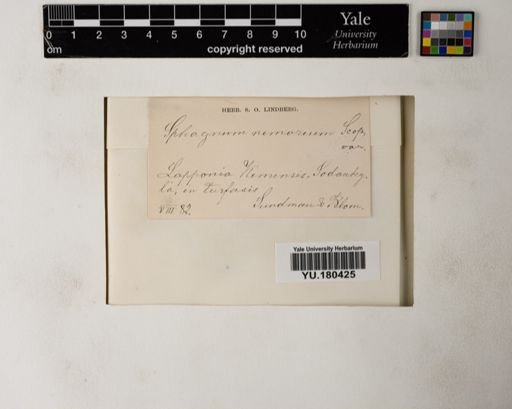 0 1 2 3 4 5 6 7 8 9 10
cm
copyright reserved
Yale
University
Herbarium
HERB. S. O. LINDBERG.
Sphagnum nemoreum Scop,
var.
Lapponia Kemensis, Sodankylä, in turfosis
VIII 82. Sundman & Blom.
Yale University Herbarium
YU.180425